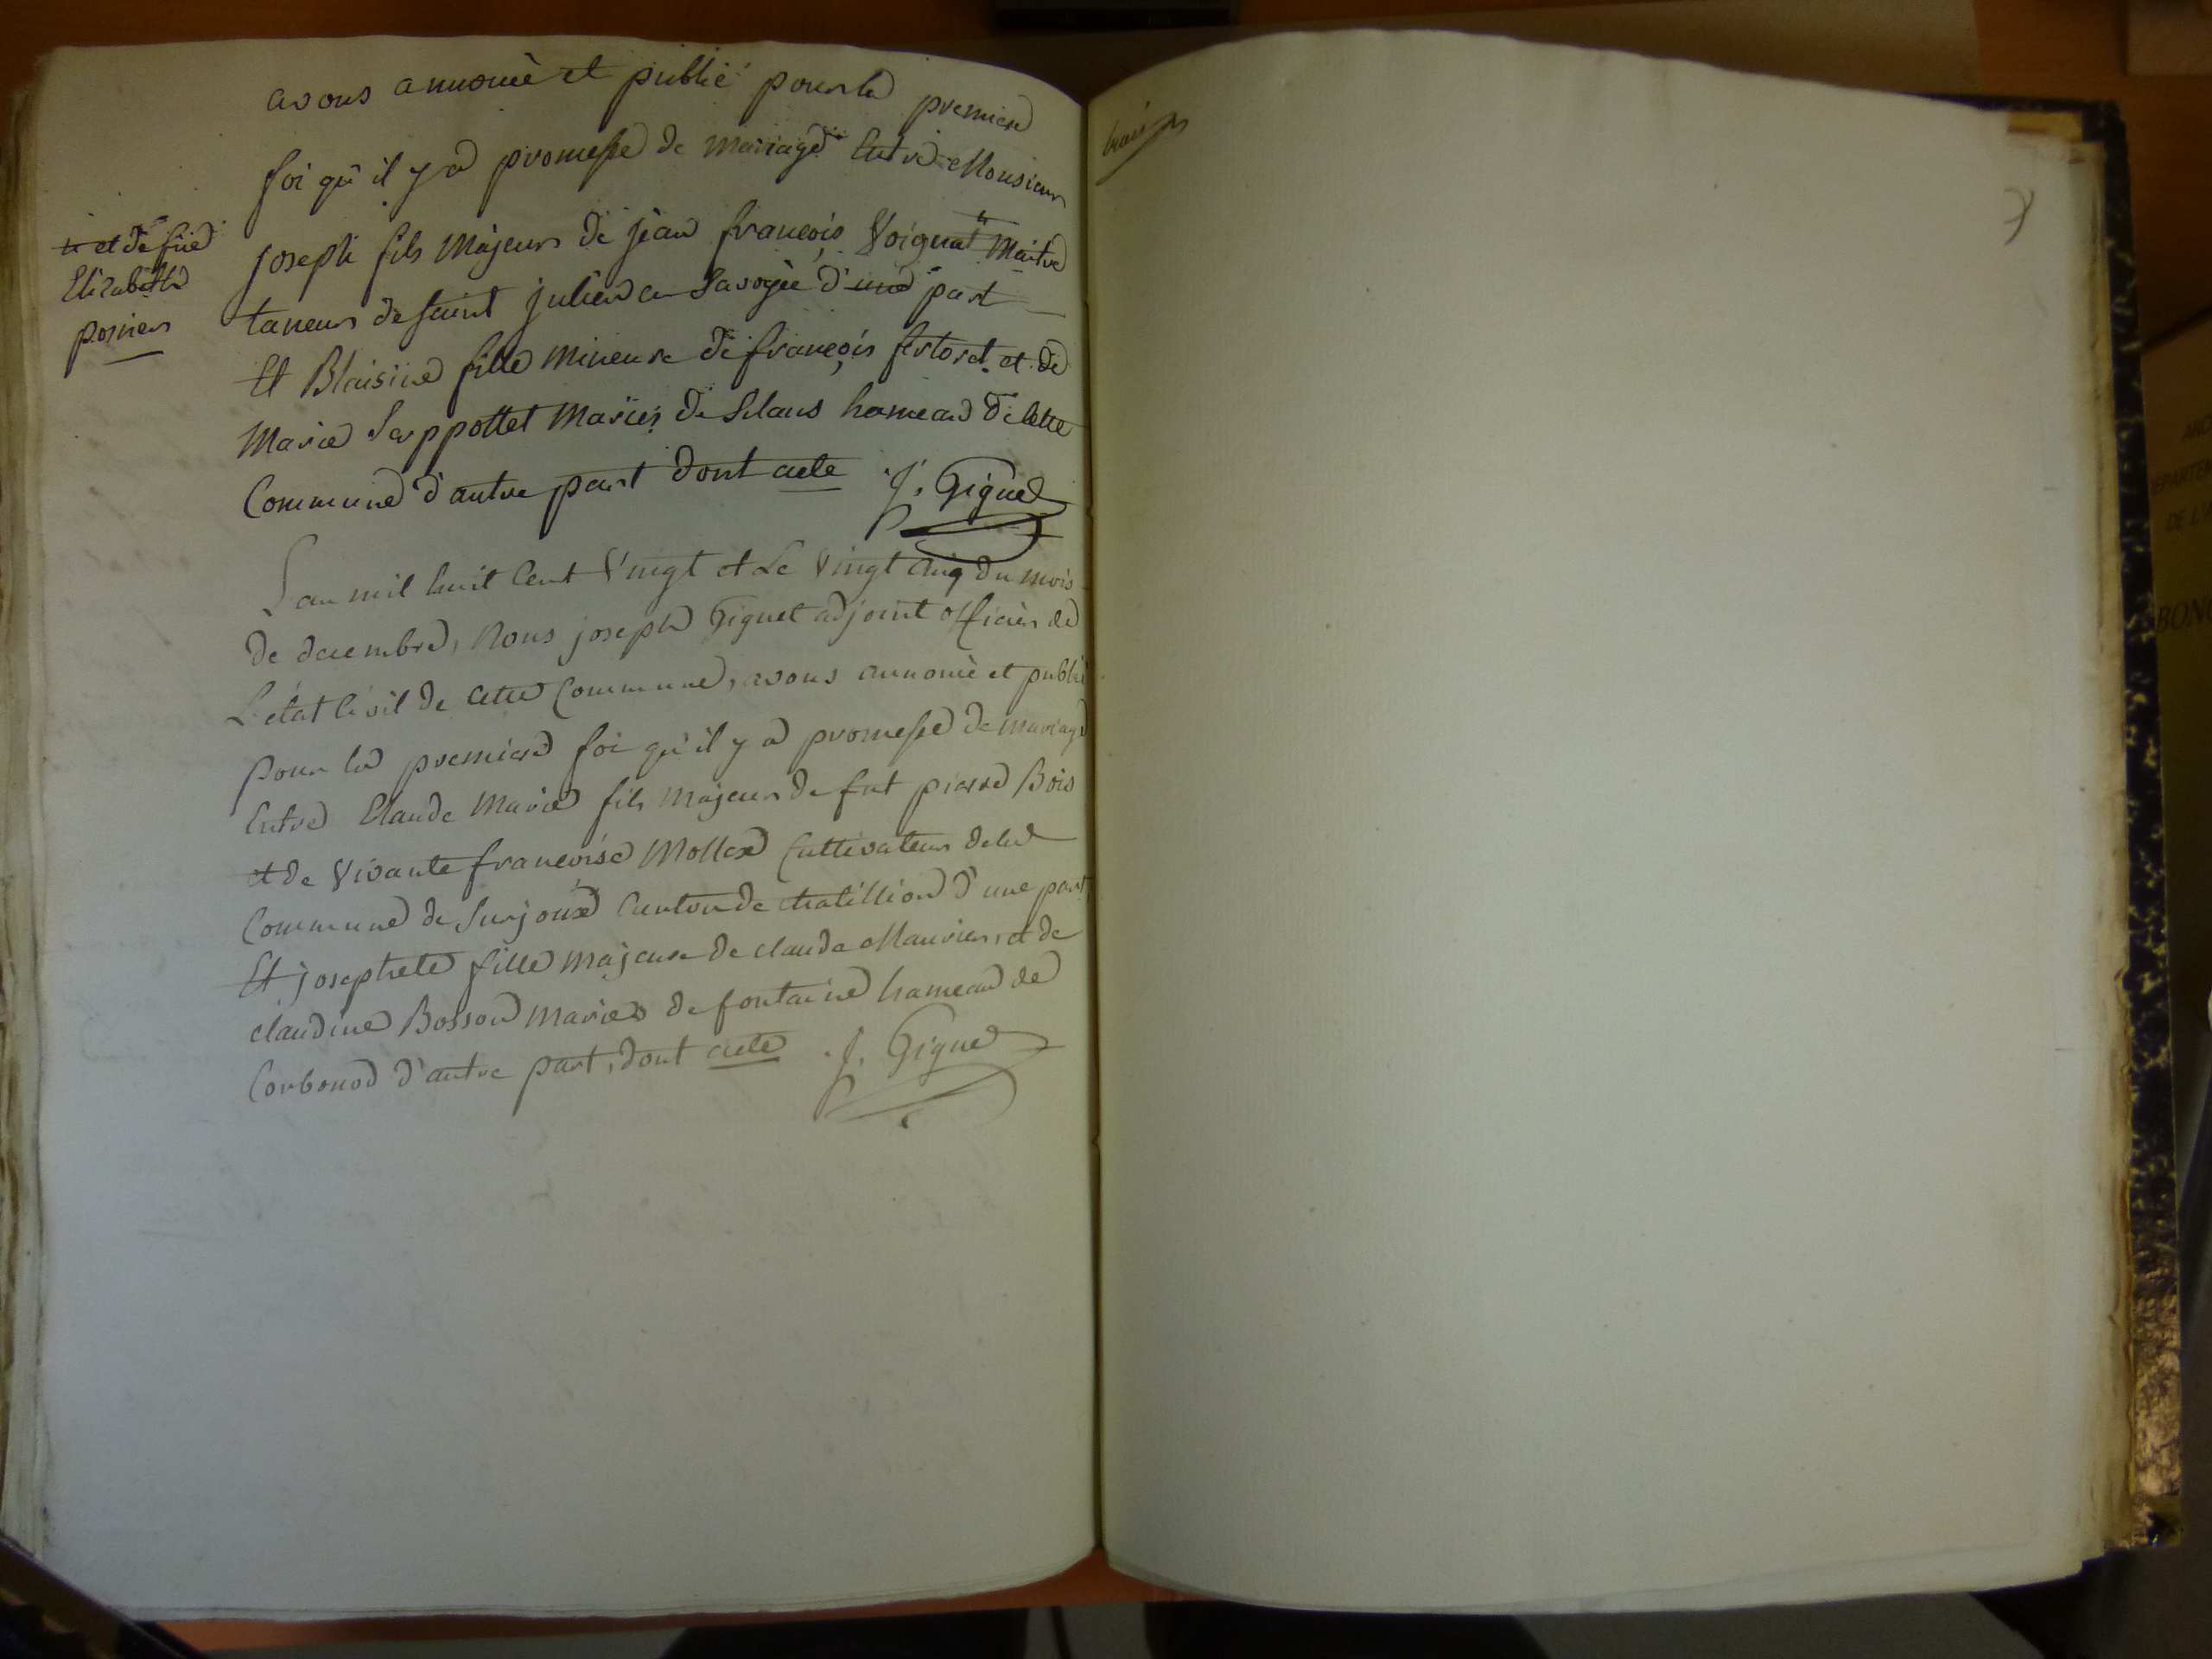 avons annoncé et publié pour la premiere
foi qu'il y a promesse de mariage Entre Monsieur
joseph fils Majeur de jean françois Voignat # Maitre
taneur de saint julien en Savoyée d'une part
Et Blaisine fille Mineure de françois fertoret et de
Marie Serppottet Mariés de Silans hameau de Cette
Commune d'autre part dont acte J. Giguet
# et de fue
Elizabeth
L'an mil huit Cent Vingt et Le Vingt Cinq du mois
de decembre, Nous joseph Giguet adjoint officier de
L'état Civil de Cette Commune, avons annoncé et publié
pour la premiere foi qu'il y a promesse de mariage
Entre Claude Marie fils Majeur de fut pierre Bois
et de Vivante françoise Mollex Cultivateur de la
Commune de Surjoux Canton de Chatillion d'une part
Et josephete fille majeure de claude Mauvier, et de
claudine Bosson Mariés de fontaine hameau de
Corbonod d'autre part, dont acte J. Giguet
ARC
DEPARTE
DE L'A
BON